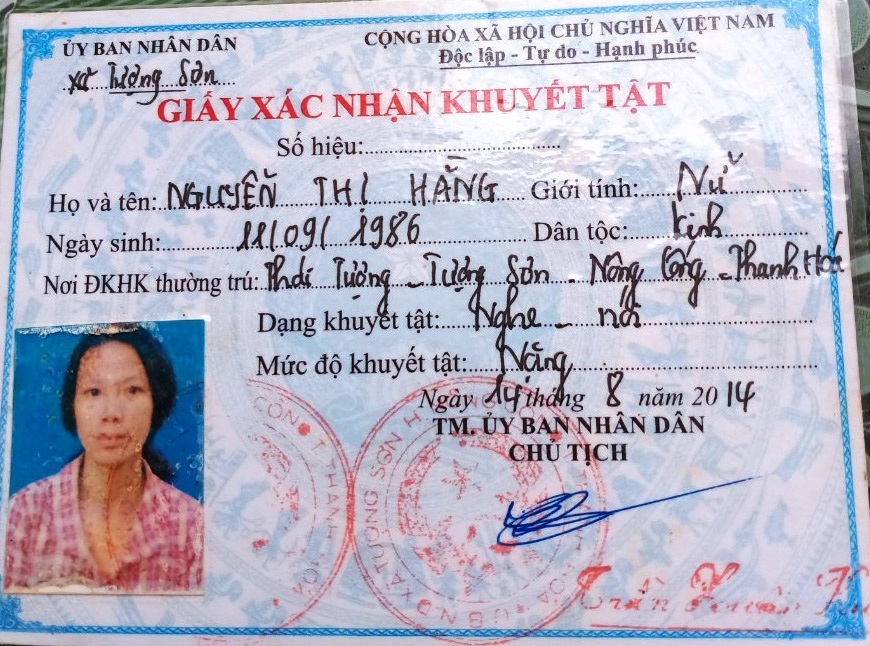 ỦY BAN NHÂN DÂN
xã Tượng Sơn
CỘNG HÒA XÃ HỘI CHỦ NGHĨA VIỆT NAM
Độc lập - Tự do - Hạnh phúc
GIẤY XÁC NHẬN KHUYẾT TẬT
Số hiệu:
Họ và tên: NGUYỄN THỊ HẰNG Giới tính: Nữ
Ngày sinh: 11/09/1986 Dân tộc: Kinh
Nơi ĐKHK thường trú: Thái Tượng - Tượng Sơn - Nông Cống - Thanh Hoá
Dạng khuyết tật: Nghe - nói
Mức độ khuyết tật: Nặng
Ngày 14 tháng 8 năm 2014
TM. ỦY BAN NHÂN DÂN
CHỦ TỊCH
Trần Xuân